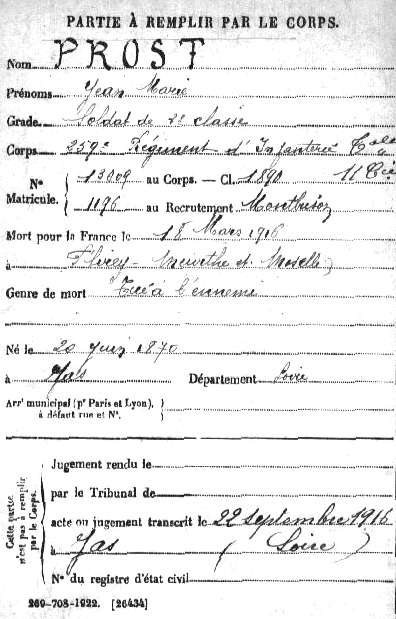 PARTIE À REMPLIR PAR LE CORPS.
Nom PROST
Prénoms Jean Marie
Grade Soldat de 2e classe
Corps 259e Régiment d'Infanterie Tale
11 Cie
N° Matricule. { 13009 au Corps. — Cl. 1890
1196 au Recrutement Montbrison
Mort pour la France le 18 Mars 1916
à Flirey - Meurthe et Moselle
Genre de mort Tué à l'ennemi
Né le 20 Juin 1870
à Jas Département Loire
Arr' municipal (p' Paris et Lyon),
à défaut rue et N°.
Cette partie n'est pas à remplir par le Corps.
Jugement rendu le
par le Tribunal de
acte ou jugement transcrit le 22 septembre 1916
à Jas (Loire)
N° du registre d'état civil
269-708-1922. [26434]